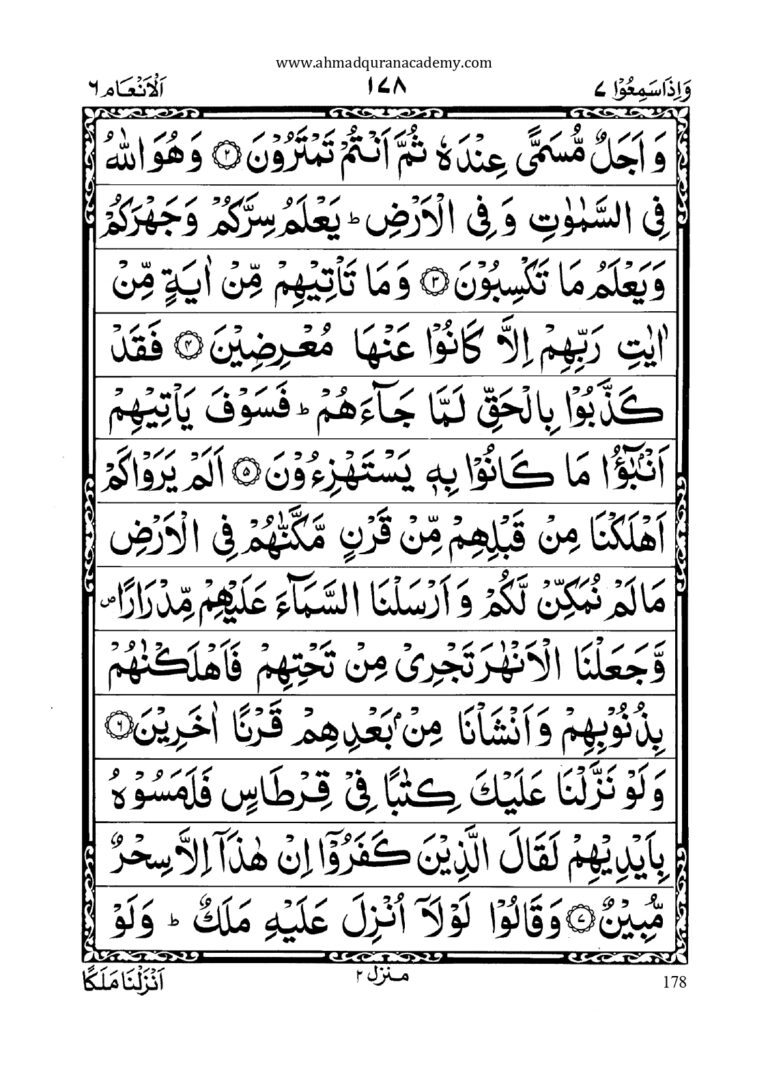 www.ahmadquranacademy.com
وَاِذَاسَمِعُوْا ۷ ۱۷۸ اَلْاَنْعَام ۶
وَ اَجَلٌ مُّسَمًّى عِنْدَهٗ ثُمَّ اَنْتُمْ تَمْتَرُوْنَ ۝۲ وَ هُوَ اللّٰهُ
فِی السَّمٰوٰتِ وَ فِی الْاَرْضِ ؕ یَعْلَمُ سِرَّكُمْ وَ جَهْرَكُمْ
وَیَعْلَمُ مَا تَكْسِبُوْنَ ۝۳ وَ مَا تَاْتِیْهِمْ مِّنْ اٰیَةٍ مِّنْ
اٰیٰتِ رَبِّهِمْ اِلَّا كَانُوْا عَنْهَا مُعْرِضِیْنَ ۝۴ فَقَدْ
كَذَّبُوْا بِالْحَقِّ لَمَّا جَآءَهُمْ ؕ فَسَوْفَ یَاْتِیْهِمْ
اَنْۢبٰٓؤُا مَا كَانُوْا بِهٖ یَسْتَهْزِءُوْنَ ۝۵ اَلَمْ یَرَوْا كَمْ
اَهْلَكْنَا مِنْ قَبْلِهِمْ مِّنْ قَرْنٍ مَّكَّنّٰهُمْ فِی الْاَرْضِ
مَا لَمْ نُمَكِّنْ لَّكُمْ وَ اَرْسَلْنَا السَّمَآءَ عَلَیْهِمْ مِّدْرَارًا ۪
وَّ جَعَلْنَا الْاَنْهٰرَ تَجْرِیْ مِنْ تَحْتِهِمْ فَاَهْلَكْنٰهُمْ
بِذُنُوْبِهِمْ وَ اَنْشَاْنَا مِنْۢ بَعْدِهِمْ قَرْنًا اٰخَرِیْنَ ۝۶
وَ لَوْ نَزَّلْنَا عَلَیْكَ كِتٰبًا فِیْ قِرْطَاسٍ فَلَمَسُوْهُ
بِاَیْدِیْهِمْ لَقَالَ الَّذِیْنَ كَفَرُوْۤا اِنْ هٰذَاۤ اِلَّا سِحْرٌ
مُّبِیْنٌ ۝۷ وَ قَالُوْا لَوْلَاۤ اُنْزِلَ عَلَیْهِ مَلَكٌ ؕ وَ لَوْ
اَنْزَلْنَا مَلَكًا منزل ۲ 178